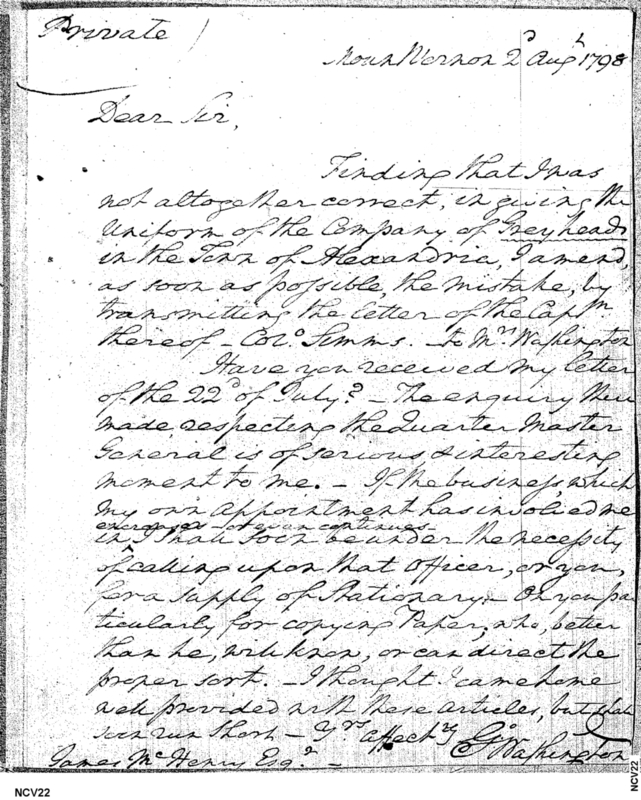 Private
Mount Vernon 2d Augt 1798
Dear Sir,
Finding that I was
not altogether correct, in giving the
Uniform of the Company of Greyheads
in the Town of Alexandria, I amend,
as soon as possible, the mistake, by
transmitting the letter of the Captn
thereof – Colo. Simms. – to Mrs. Washington
Have you received my letter
of the 22d of July? – The enquiry then
made, respecting the Quarter Master
General is of serious & interesting
moment to me. – If the business, which
my own appointment has involved me
encreases – or even continues –
in I shall soon be under the necessity
of calling upon that Officer, or you,
for a supply of Stationary; – On you par
ticularly for copying Paper, who, better
than he, will know, or can direct the
proper sort. – I thought I came home
well provided with these articles, but shall
soon run short – Yrs affectly
Go: Washington
James McHenry Esqr. –
NCV22
NCV22